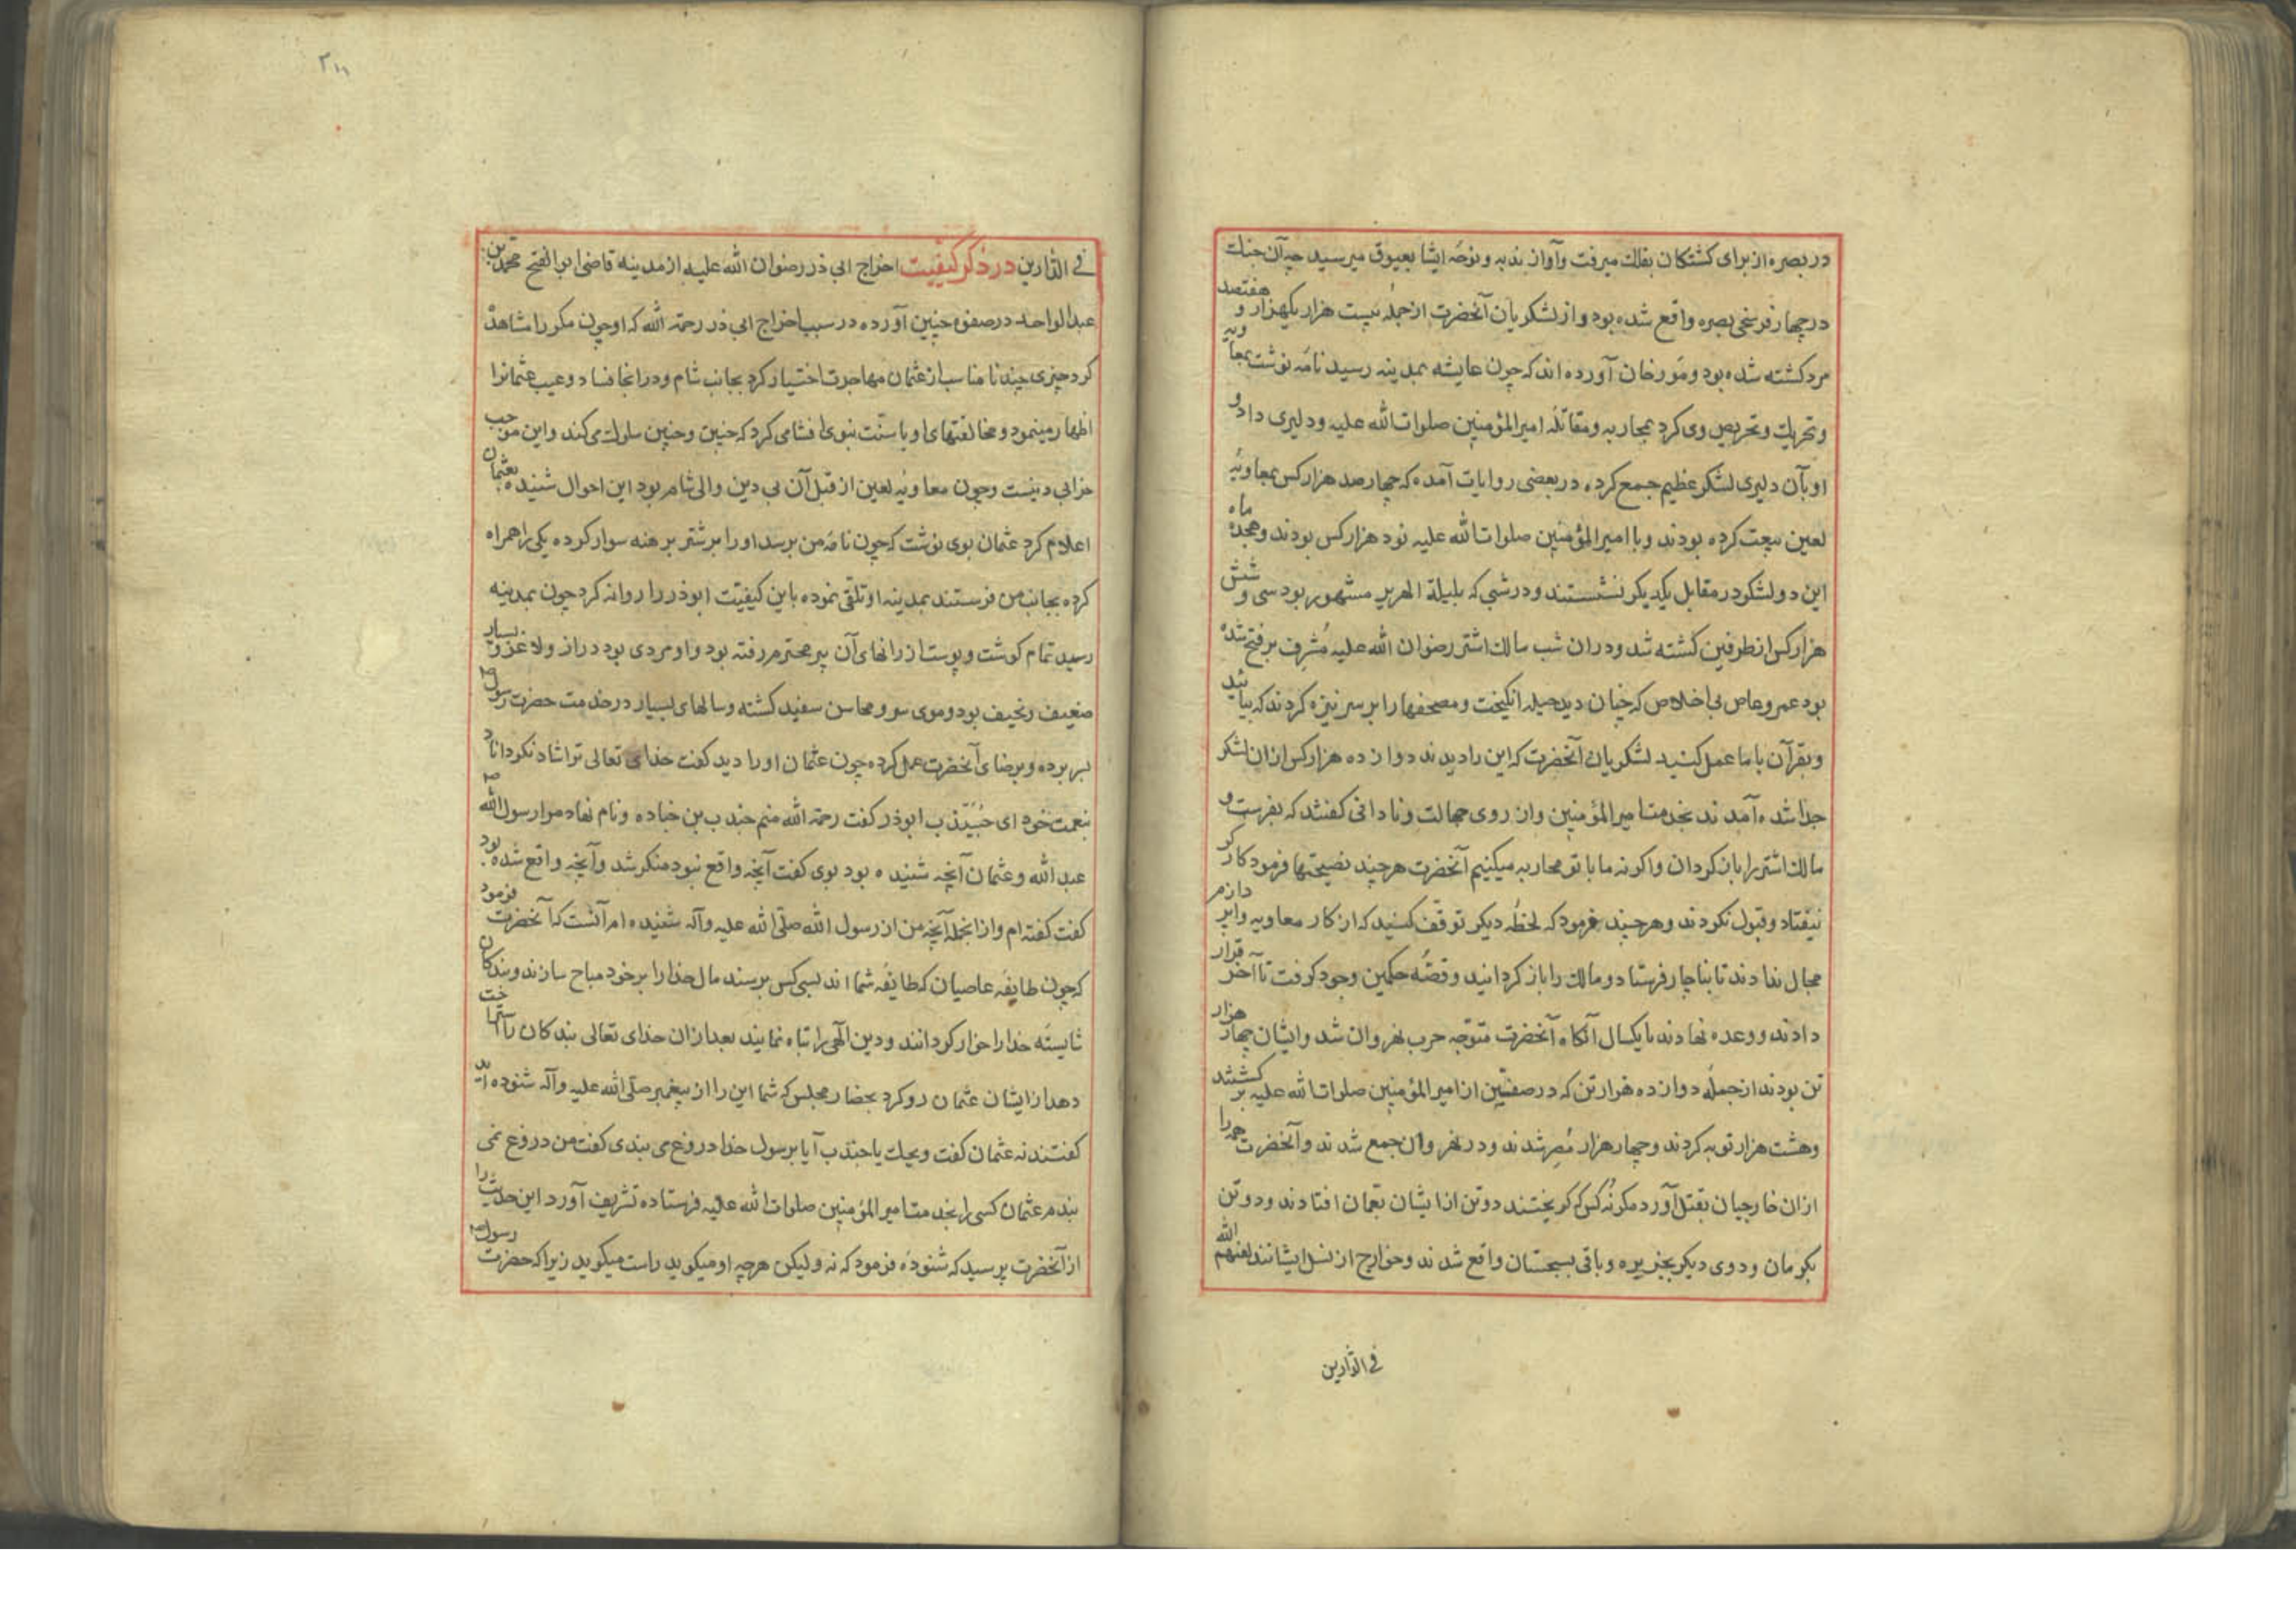 در بصره از برای کشتکان بفلک میرفت وآواز ندبه و نوحه ایشا بعیوق میرسید چه آن جنک
در چهار فرسخی بصره واقع شده بود و از لشکریان آنحضرت از جمله بیست هزار یکهزار و هفتصد
مرد کشته شده بود و مورخان آورده اند که چون عایشه بمدینه رسید نامه نوشت بمعاویه
و تحریک و تحریص وی کرد بمحاربه و مقاتله امیرالمؤمنین صلوات الله علیه و دلیری داد و
او بآن دلیری لشکر عظیم جمع کرده در بعضی روایات آمده که چهار صد هزار کس بمعاویه
لعین بیعت کرده بودند و با امیرالمؤمنین صلوات الله علیه نود هزار کس بودند و هجده ماه
این دو لشکر در مقابل یکدیکر نشستند و در شبی که بلیلة الهریر مشهور بود سی و شش
هزار کس از طرفین کشته شد و در ان شب مالک اشتر رضوان الله علیه مشرف بر فتح شده
بود عمرو عاص بی اخلاص که چنان دید حیله انکیخت و مصحفها را بر سر نیزه کردند که بیائید
و بقرآن با ما عمل کنید لشکریان آنحضرت که این را دیدند دوازده هزار کس از ان لشکر
جدا شده آمدند بخدمت امیرالمؤمنین و از روی جهالت و نادانی کفتند که بفرست و
مالک اشتر را باز کردان و اکر نه ما با تو محاربه میکنیم آنحضرت هرچند نصیحتها فرمود کارکر
نیفتاد و قبول نکردند و هرچند فرمود که لحظهٔ دیکر توقف کنید که از کار معاویه وا پردازم
مجال ندادند تا بناچار فرستاد و مالک را باز کردانید و قصهٔ حکمین وجود کرفت تا آخر قرار
دادند و وعده نهادند تا یکسال آنکاه آنحضرت متوجه حرب نهروان شد و ایشان چهار هزار
تن بودند از جملهٔ دوازده هزار تن که در صفین از امیرالمؤمنین صلوات الله علیه بر کشتند
و هشت هزار توبه کردند و چهار هزار مصر شدند و در نهروان جمع شدند و آنحضرت همه را
از ان خارجیان بقتل آورد مکر نه کس که کریختند دو تن از ایشان بعمان افتادند و دو تن
بکرمان و دوی دیکر بجزیره و باقی بسجستان واقع شدند و خوارج از نسل ایشانند لعنهم الله
فی الدّارین
۲۱۱
فی الدّارین در ذکر کیفیت اخراج ابی ذر رضوان الله علیه از مدینه قاضی ابو الفتح محمد بن
عبدالواحد در صفوه چنین آورده در سبب اخراج ابی ذر رحمة الله که او چون مکرر مشاهده
کرد چیزی چند نامناسب از عثمان مهاجرت اختیار کرد بجانب شام و در انجا فساد و عیب عثمانرا
اظهار مینمود و مخالفتهای او با سنّت نبوی افشا می کرد که چنین و چنین سلوک می کند و این موجب
خرابی دینست و چون معاویه لعین از قبل آن بی دین والی شام بود این احوال شنیده بعثمان
اعلام کرد عثمان بوی نوشت که چون نامه من برسد او را بر شتر برهنه سوار کرده یکی را همراه
کرده بجانب من فرستند بمدینه او تلقّی نموده باین کیفیت ابوذر را روانه کرد چون بمدینه
رسید تمام کوشت و پوست از رانهای آن پیر محترم رفته بود و او مردی بود دراز و لاغر و بسیار
ضعیف و نحیف بود و موی سر و محاسن سفید کشته و سالهای بسیار در خدمت حضرت رسول ص
بسر برده و برضای آنحضرت عمل کرده چون عثمان او را دید کفت خدای تعالی ترا شاد نکرداناد
بنعمت خود ای جنیدب ابوذر کفت رحمة الله منم جندب بن جناده و نام نهاد مرا رسول الله ص
عبد الله و عثمان آنچه شنیده بود بوی کفت آنچه واقع نبود منکر شد و آنچه واقع شده بود
کفت کفته ام و از انجمله آنچه من از رسول الله صلّی الله علیه وآله شنیده ام آنست که آنحضرت فرمود
که چون طایفه عاصیان که طایفه شما اند بسی کس برسند مال خدا را بر خود مباح سازند و بندکان
شایسته خدا را خوار کردانند و دین الهی را تباه نمایند بعد از ان خدای تعالی بندکان را
دهد از ایشان عثمان رو کرد بحضار مجلس که شما این را از پیغمبر صلّی الله علیه وآله شنوده اید
کفتند نه عثمان کفت ویلک یا جندب آیا بر رسول خدا دروغ می بندی کفت من دروغ نمی
بندم عثمان کسی را بخدمت امیرالمؤمنین صلوات الله علیه فرستاده تشریف آورد این حدیث را
از آنحضرت پرسید که شنودهٔ فرمود که نه ولیکن هرچه او میکوید راست میکوید زیرا که حضرت رسول ص